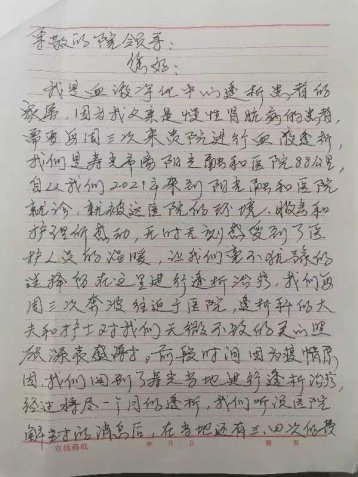 尊敬的院领导:
您好:
我是血液净化中心透析患者的
家属,因为我父亲是慢性肾脏病的患者,
需要每周三次来贵院进行血液透析,
我们是寿光市离阳光融和医院88公里,
自从我们2021年来到阳光融和医院
就诊,就被这医院的环境、服务和
护理所感动,无时无刻感受到了医
护人员的温暖,让我们毫不犹豫的
选择留在这里进行透析治疗,我们每
周三次奔波往返于医院,透析科的大
夫和护士对我们无微不致的关心照
顾深表感谢。前段时间因为疫情原
因,我们回到了寿光当地进行透析治疗,
经过将近一个月的透析,我们听说医院
解封的消息后,在当地还有三、四次的透
双线稿纸 年 月 日 第 页